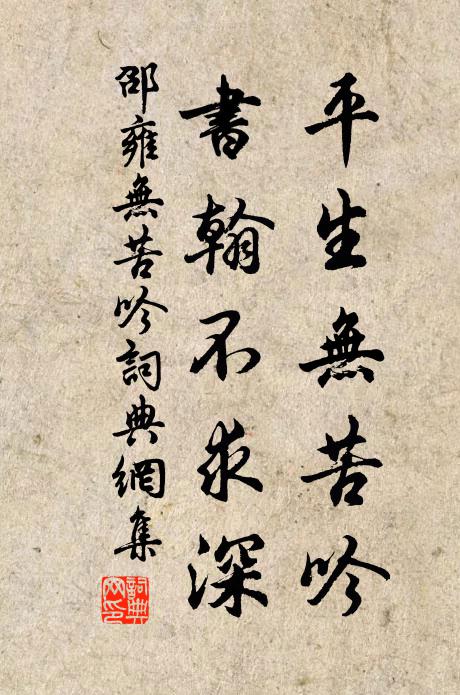 平生無苦吟
書翰不求深
邵雍無苦吟詞典網集
詞典網印